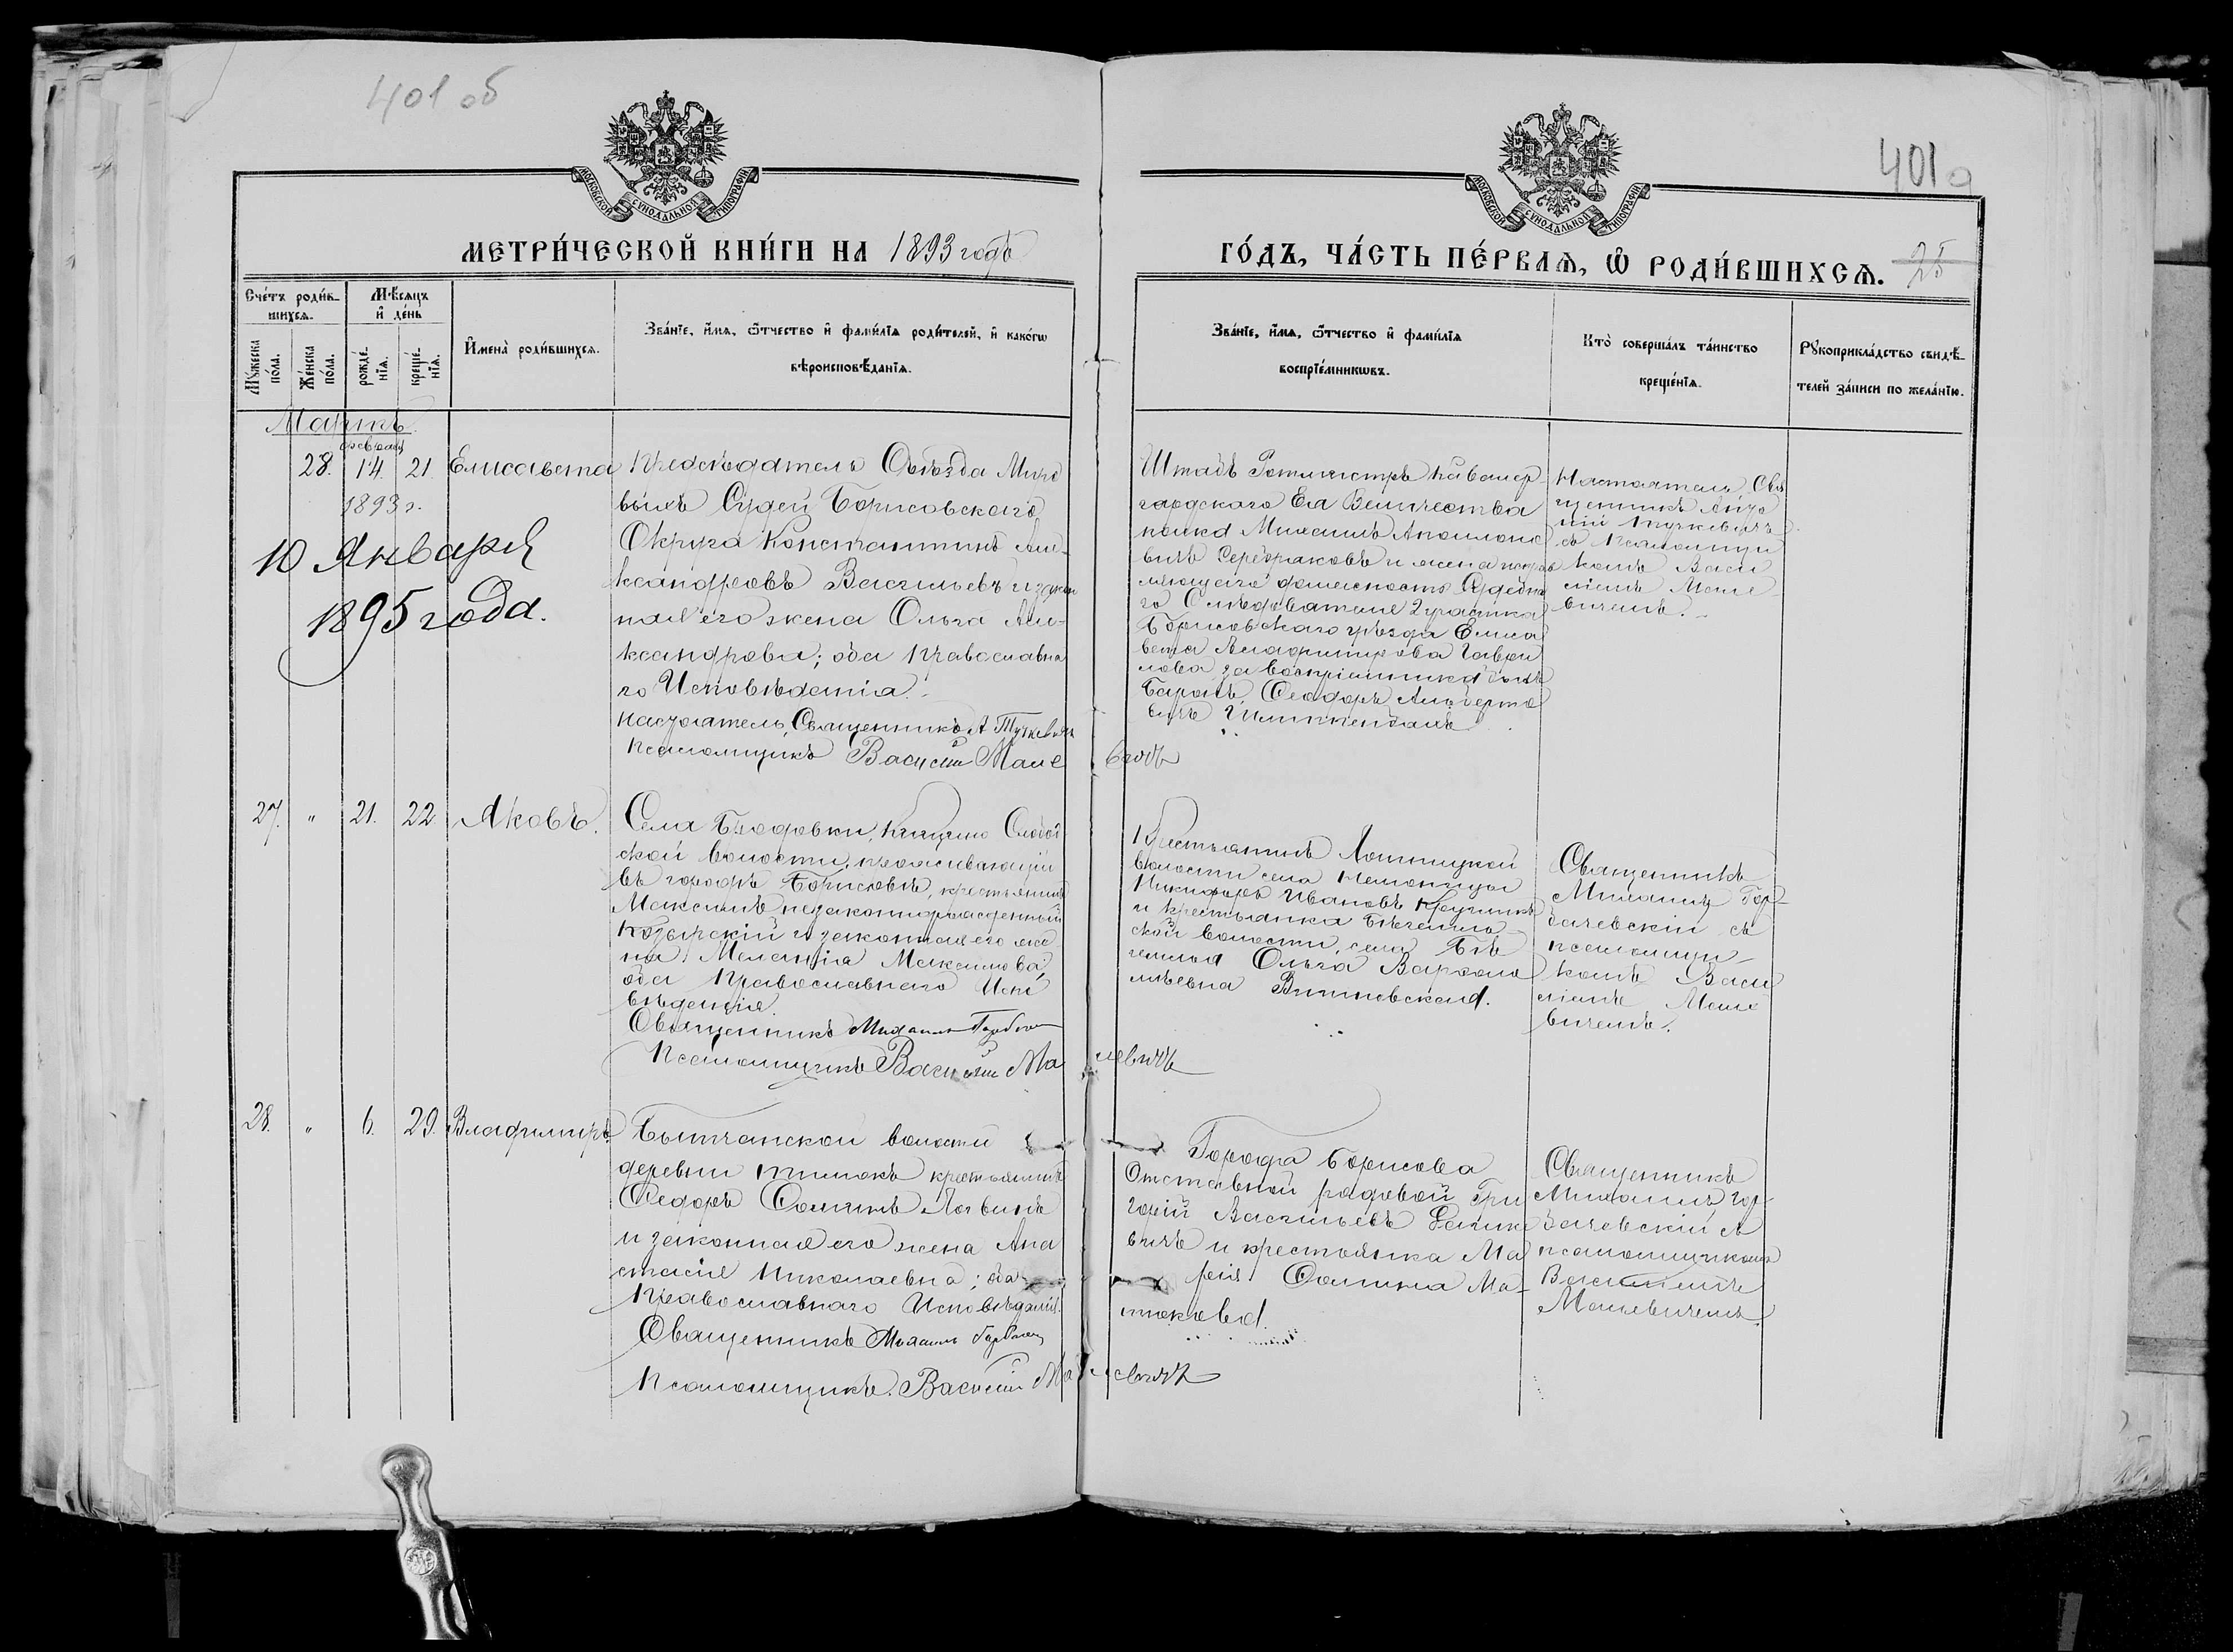 401 об
401 а
МОСКОВСКОЙ СѴНОДАЛЬНОЙ ТИПОГРАФІИ
МЕТРИ́ЧЕСКОЙ КНИ́ГИ НА 1893 годъ
Сче́тъ роди́в-
шихся.
Мѣ́сяцъ
и҆ де́нь
Мꙋ́жеска
по́ла.
Же́нска
по́ла.
рожде́-
нїѧ.
креще́-
нїѧ.
И҆мена̀ роди́вшихсѧ.
Зва́нїе, и҆́мѧ, ѻ҆́тчество и҆ фами́лїѧ роди́телей, и҆ како́гѡ
вѣроисповѣ́данїѧ.
Мартъ.
февраля
28. 14. 21. Елисавета
1893 г.
10 Января
1895 года.
Предсѣдатель Съѣзда Миро
выхъ Судей Борисовскаго
Округа Константинъ Але-
ксандровъ Васильевъ и закон
ная его жена Ольга Але-
ксандрова; оба Православна
го Исповѣданія.
Настоятель, Священникъ А Тучкевичъ
Псаломщикъ Василій Мале вичъ
27. " 21. 22. Яковъ.
Села Бродовки,
ской волости, проживающій
въ городѣ Борисовѣ, крестьянинъ
Максимъ незаконнорожденный
Козырскій и законная его же
на Меланія Максимова
оба Православнаго Испо
вѣданія.
Священникъ Михаилъ
Псаломщикъ Василій Ма левичъ
28. " 6. 29. Владимиръ.
Бытчанской волости
деревни крестьянинъ
Ѳедоръ Логвинъ
и законная его жена Ана
стасія Николаевна; оба
Православнаго Исповѣданія.
Священникъ Михаилъ
Псаломщикъ. Василій Ма левичъ
МОСКОВСКОЙ СѴНОДАЛЬНОЙ ТИПОГРАФІИ
ГО́ДЪ, ЧА́СТЬ ПЕ́РВАѦ, Ѡ҆ РОДИ́ВШИХСѦ. 25
Зва́нїе, и҆́мѧ, ѻ҆́тчество и҆ фами́лїѧ
воспрїе́мникѡвъ.
Кто̀ соверша́лъ та́инство
креще́нїѧ.
Рꙋкоприкла́дство свидѣ́-
телей за́писи по жела́нїю.
Штабъ Ротмистръ Кавалер
гардскаго Ея Величества
полка Михаилъ Аполлоно
вичъ и жена исправ
ляющаго должность Судебна
го Слѣдователя 2 участка
Борисовскаго уѣзда Елиса
вета Владимирова Гаври
лова, за воспріемника былъ
Баронъ Ѳеодоръ Альберто
вичъ
Настоятель, Свя
щенникъ
ній Тучкевичъ
съ Псаломщи
комъ Васи
ліемъ Мале
вичемъ.
Крестьянинъ Лошницкой
волости села Неманицы
Никифоръ Ивановъ
и крестьянка
ской волости, села
Ольга Варѳоло
мѣевна Вишневская.
Священникъ
Михаилъ Гор-
бачевскій съ
псаломщи-
комъ Васи
ліемъ Мале
вичемъ.
Города Борисова
Отставной рядовой Гри
горій Васильевъ
вичъ и крестьянка Ма
рія Ма-
Священникъ
Михаилъ Гор-
бачевскій съ
псаломщикомъ
Василіемъ
Малевичемъ.